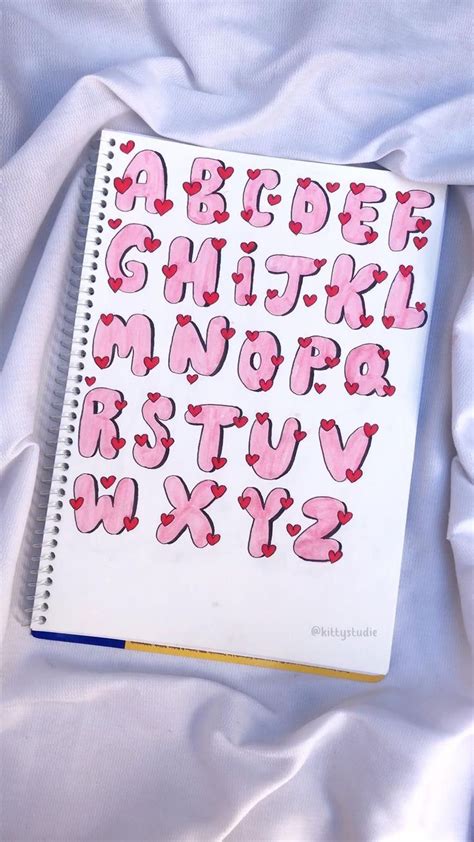 ABCDEF
GHiJKL
MNOPQ
RSTUV
WXYZ
@kittystudie